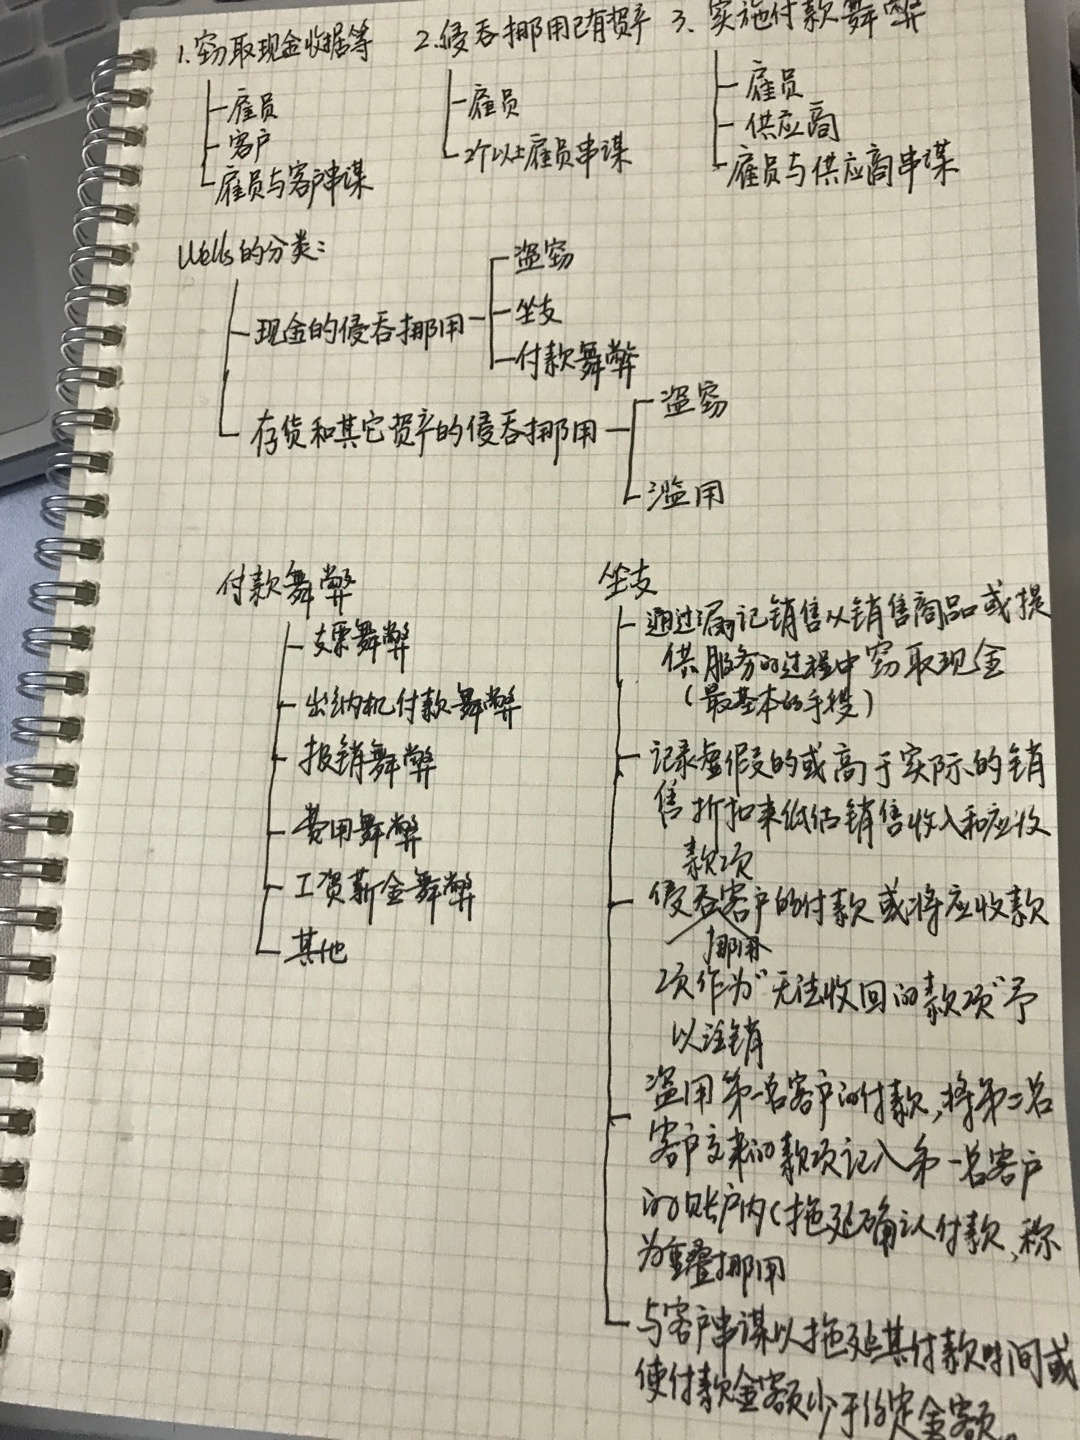 1.窃取现金收据等 2.侵吞挪用已有资产 3.实施付款舞弊
雇员
客户
雇员与客户串谋
雇员
2个以上雇员串谋
雇员
供应商
雇员与供应商串谋
Wells的分类:
现金的侵吞挪用
盗窃
坐支
付款舞弊
存货和其它资产的侵吞挪用
盗窃
滥用
付款舞弊
支票舞弊
出纳机付款舞弊
报销舞弊
费用舞弊
工资薪金舞弊
其他
坐支
通过漏记销售从销售商品或提
供服务的过程中窃取现金
(最基本的手段)
记录虚假的或高于实际的销
售折扣来低估销售收入和应收
款项
侵吞客户的付款或将应收款
挪用
项作为“无法收回的款项”予
以注销
盗用第一名客户的付款,将第二名
客户交来的款项记入第一名客户
的账户内(拖延确认付款,称
为重叠挪用
与客户串谋以拖延其付款时间或
使付款金额少于约定金额。